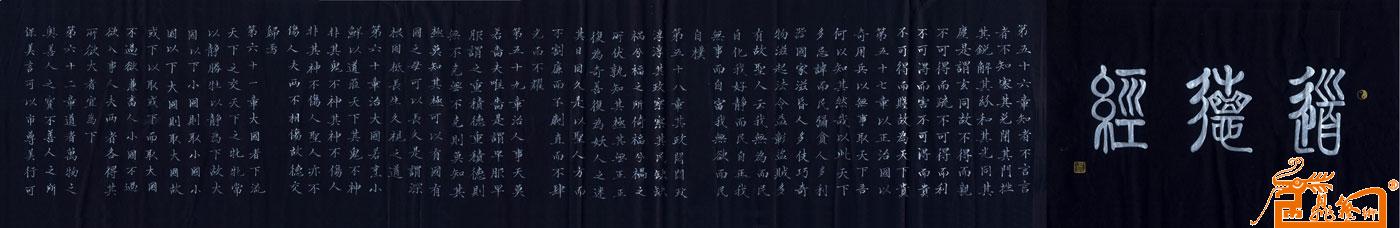 道德經
第五十六章知者不言言
者不知塞其兌閉其門挫
其銳解其紛和其光同其
塵是謂玄同故不可得而親
不可得而疏不可得而利
不可得而害不可得而貴
不可得而賤故為天下貴
第五十七章以正治國以
奇用兵以無事取天下吾
何以知其然哉以此天下
多忌諱而民彌貧人多利
器國家滋昏人多伎巧奇
物滋起法令滋彰盜賊多
有故聖人云我無為而民
自化我好靜而民自正我
無事而民自富我無欲而民
自樸
第五十八章其政悶悶其民
淳淳其政察察其民缺缺
禍兮福之所倚福兮禍之
所伏孰知其極其無正正
復為奇善復為妖人之迷
其日固久是以聖人方而
不割廉而不劌直而不肆
光而不耀
第五十九章治人事天莫
若嗇夫唯嗇是謂早服早
服謂之重積德重積德則
無不克無不克則莫知其
極莫知其極可以有國有
國之母可以長久是謂深
根固柢長生久視之道
第六十章治大國若烹小
鮮以道莅天下其鬼不神
非其鬼不神其神不傷人
非其神不傷人聖人亦不
傷人夫兩不相傷故德交
歸焉
第六十一章大國者下流
天下之交天下之牝牝常
以靜勝牡以靜為下故大
國以下小國則取小國小
國以下大國則取大國故
或下以取或下而取大國
不過欲兼畜人小國不過
欲入事人夫兩者各得其
所欲大者宜為下
第六十二章道者萬物之
奧善人之寶不善人之所
保美言可以市尊美行可